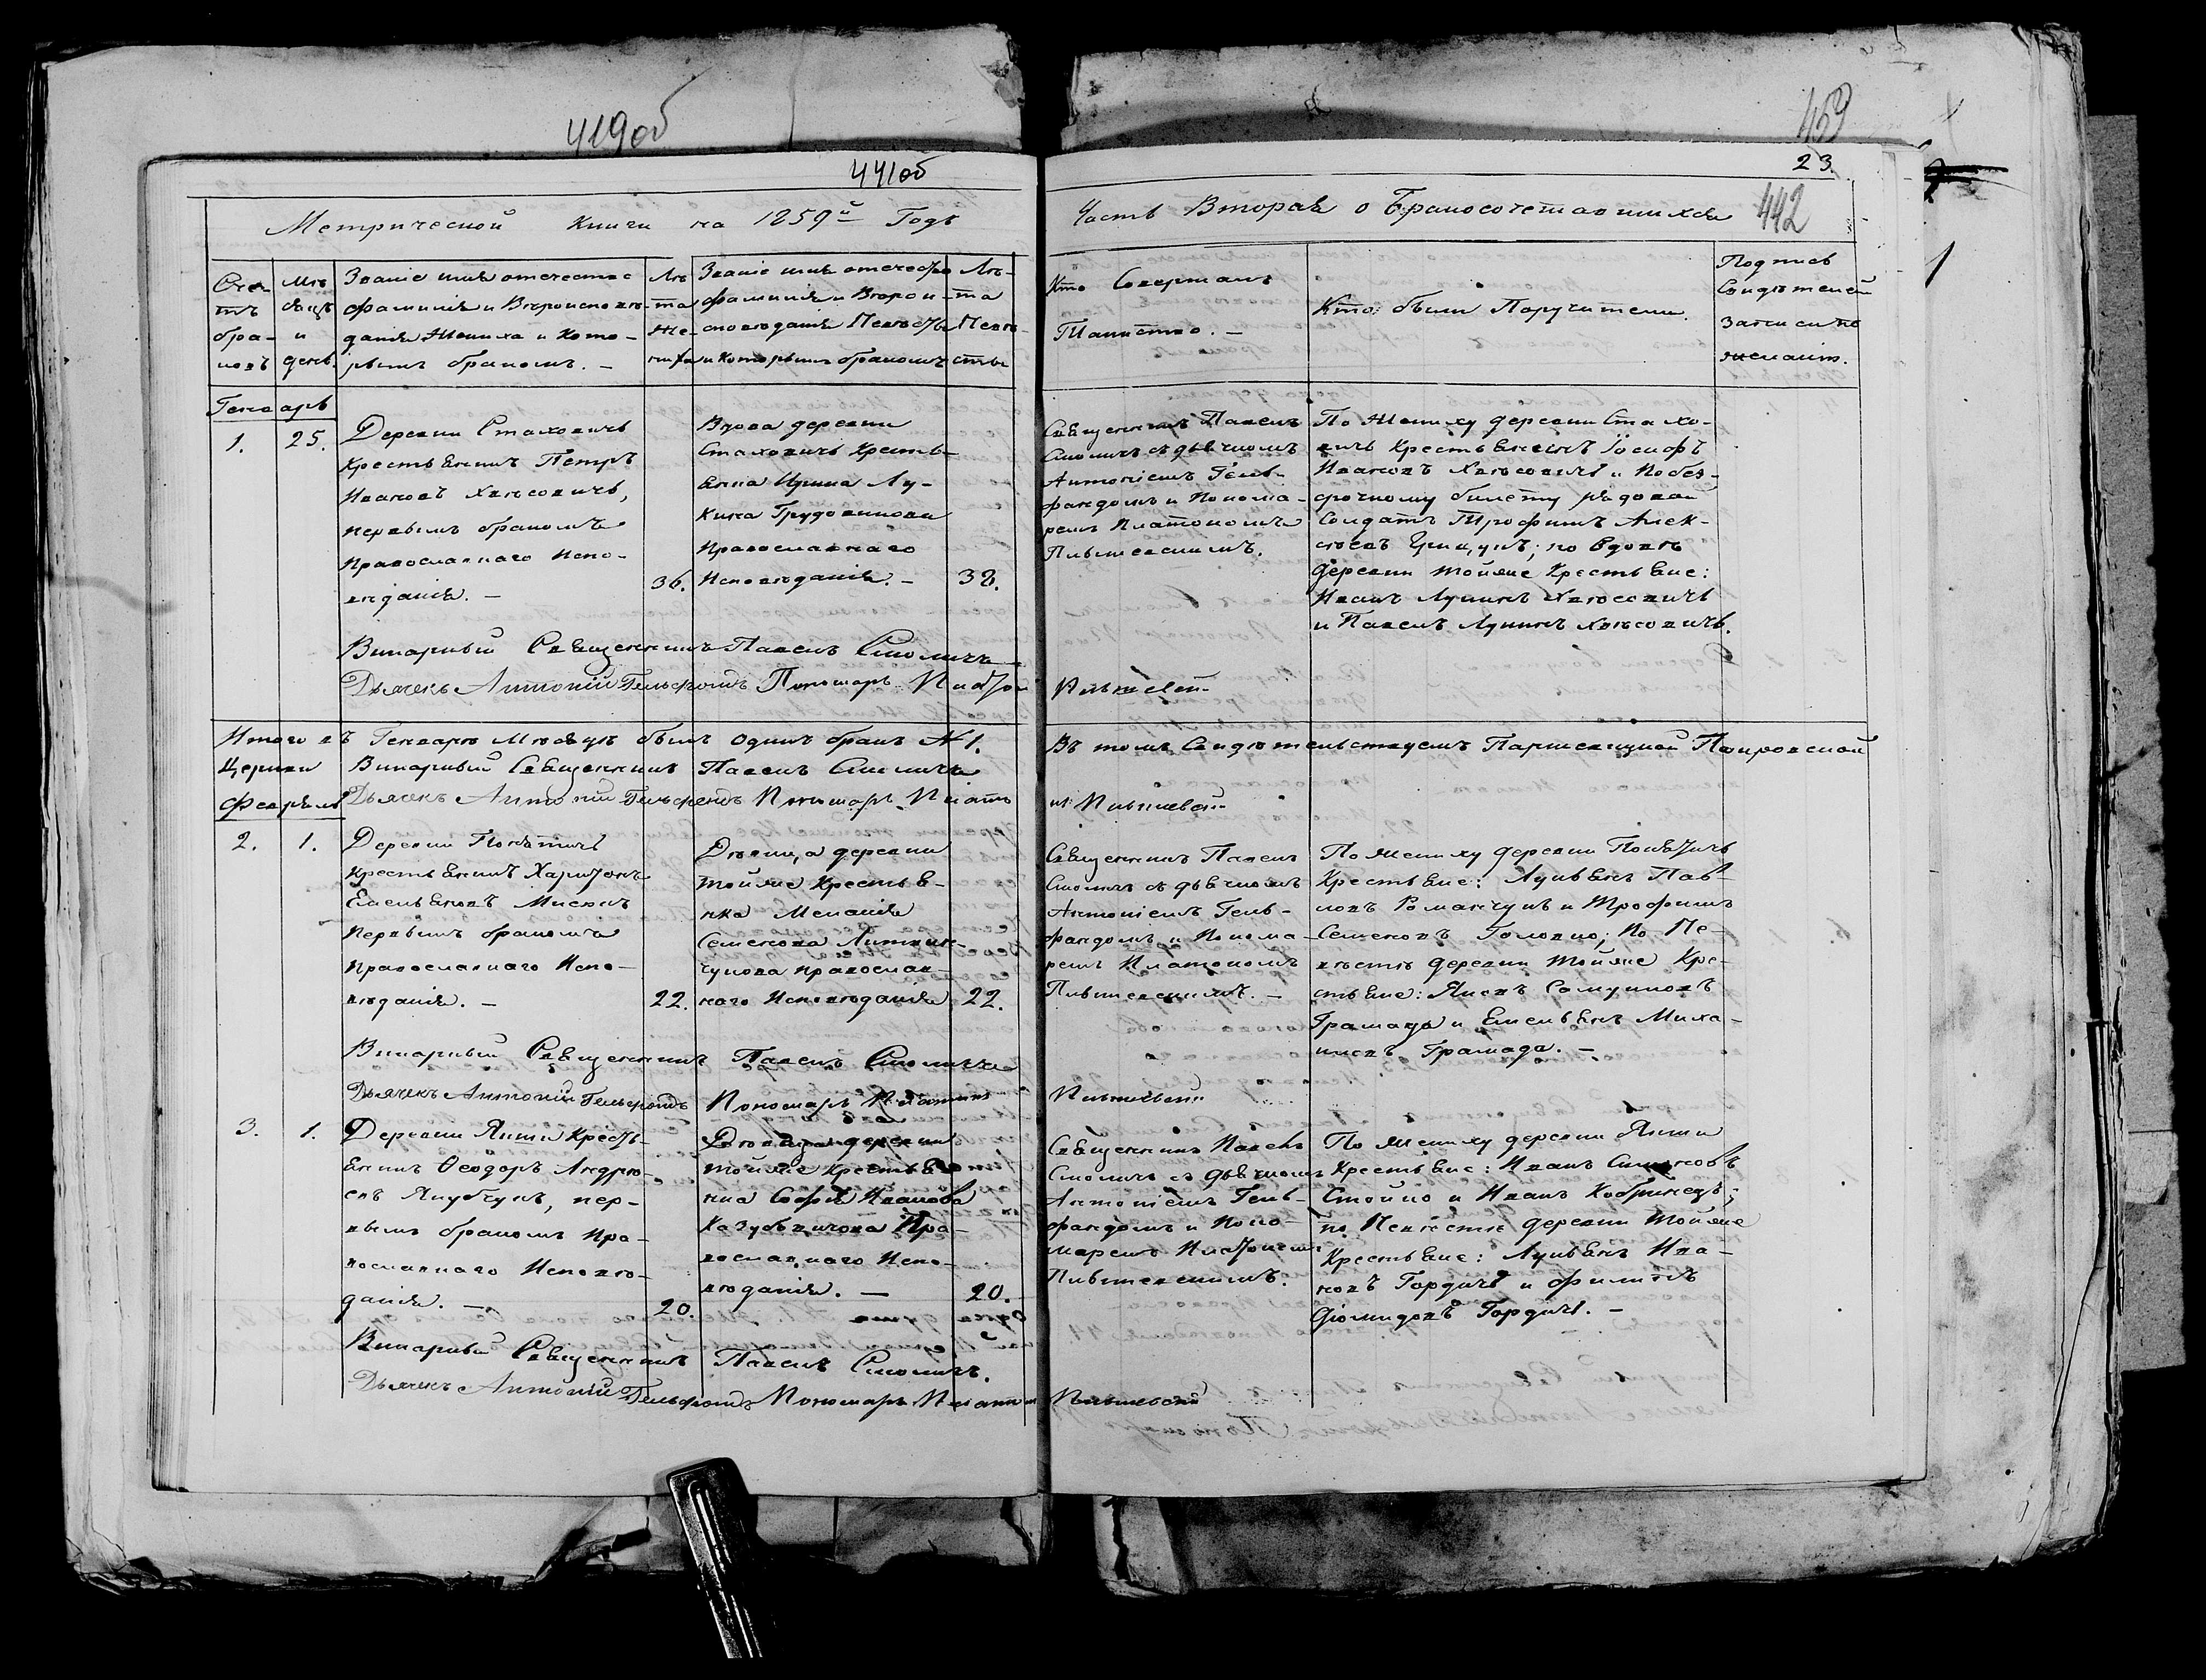 419об
441об
459
23.
442
Метрической Книги на 1859й Годъ
Часть Вторая о Бракосочетавшихся
Счетъ браковъ
Мѣсяцъ и день.
Званіе имя отечество
фамилія и Вѣроисповѣ-
данія Жениха и Кото-
рымъ бракомъ. —
Лѣта Жениха
Званіе имя отечество
фамилія и Вѣрои-
сповѣданія Невѣсты
и которымъ бракомъ
Лѣта Невѣсты
Кто Совершалъ
Таинство. —
Кто были Поручители.
Подписъ
Свидѣтелей
записи по
желаніи.
Генварь
1. 25.
Деревни Стаховичъ
Крестьянинъ Петръ
Ивановъ Хвѣсовичъ,
первымъ бракомъ
Православнаго Испо-
вѣданія. —
36.
Вдова деревни
Стаховичъ Кресть-
янка Ирина Лу-
кина
Православнаго
Исповѣданія. —
38.
Священникъ Павелъ
Смоличъ съ дьячкомъ
Антоніемъ Гель-
фандомъ и Понома-
ремъ Платономъ
По Жениху деревни Стахо-
вичъ Крестьянинъ Іосифъ
Ивановъ Хвѣсовичъ и По без-
срочному билету рядовой
Солдатъ Трофимъ Алек-
сѣевъ; по Вдовѣ
деревни тойже Крестьяне:
Иванъ Лукинъ Хвѣсовичъ
и Павелъ Лукинъ Хвѣсовичъ.
Викарный Священникъ Павелъ Смоличъ
Дьячекъ Антоній Гельфандъ Пономарь Платон
Итого въ Генварѣ Мѣсяцѣ былъ одинъ бракъ №1. Въ томъ Свидѣтельствуемъ Покровской
Церкви Викарный Священникъ Павелъ Смоличъ
Дьячекъ Антоній Гельфандъ Пономарь Платонъ
Февраль
2. 1.
Деревни
Крестьянинъ Харитонъ
Емельяновъ
Первымъ бракомъ
Православнаго Испо-
вѣданія. —
22.
Дѣвица деревни
тойже Крестья-
нка Меланія
Семенова Литвин-
чукова православ-
наго Исповѣданія
22.
Священникъ Павелъ
Смоличъ съ дьячкомъ
Антоніемъ Гель-
фандомъ и Понома-
ремъ Платономъ
По жениху деревни
Крестьяне: Лукьянъ Пав-
ловъ Романчукъ и Трофимъ
Семеновъ Головко; По Не-
вѣстѣ деревни тойже Кре-
стьяне: Яковъ Самуиловъ
Грамада и Емельянъ Миха-
иловъ Грамада. —
Викарный Священникъ Павелъ Смоличъ
Дьячекъ Антоній Гельфандъ Пономарь Платонъ
3. 1.
Деревни Крес-
тьянинъ Ѳеодоръ Андрѣе-
въ Якубчукъ, пер-
вымъ бракомъ Пра-
вославнаго Исповѣ-
данія. —
20.
Дѣвица деревни
тойже Крестья-
нка Софія Иванова
Пра-
вославнаго Испо-
вѣданія. —
20.
Священникъ Павелъ
Смоличъ съ дьячкомъ
Антоніемъ Гель-
фандомъ и Поно-
маремъ Платономъ
По жениху деревни
Крестьяне: Иванъ Симоновъ
Стойко и Иванъ Кобринецъ;
по Невѣстѣ деревни тойже
Крестьяне: Лукьянъ Ива-
новъ Гордичъ и Филипъ
Діомидовъ Гордичъ. —
Викарный Священникъ Павелъ Смоличъ.
Дьячекъ Антоній Гельфандъ Пономарь Платон